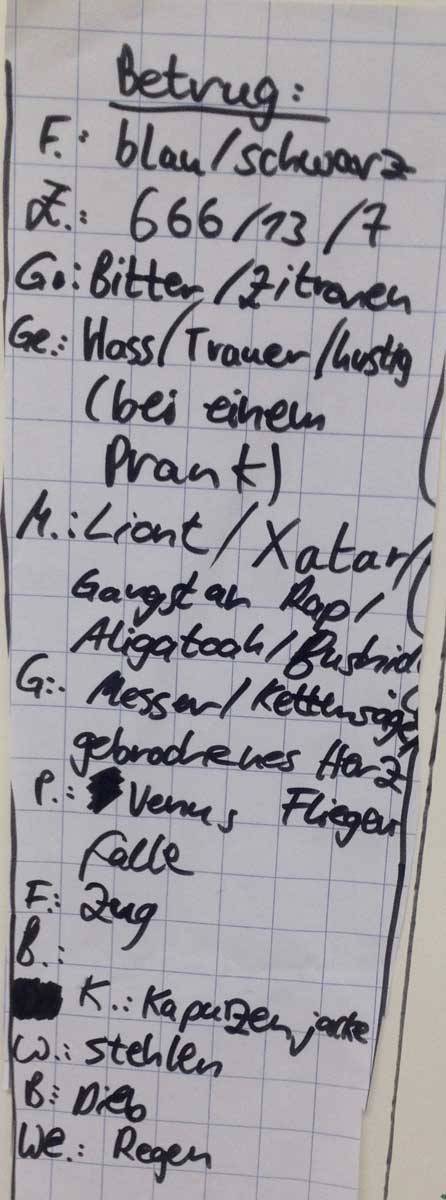 Betrug:
F.: blau/schwarz
Z.: 666/13/7
Go: Bitter/Zitronen
Ge.: Hass/Trauer/lustig
(bei einem
Prank)
M.: Liont/Xatar/
Gangstah Rap/
Aligatoah/Bushido
G.: Messer/Kettensäge
gebrochenes Herz
P.: Venus Fliegen
falle
F.: Zug
B.:
K.: Kapuzenjacke
W.: stehlen
B.: Dieb
We.: Regen